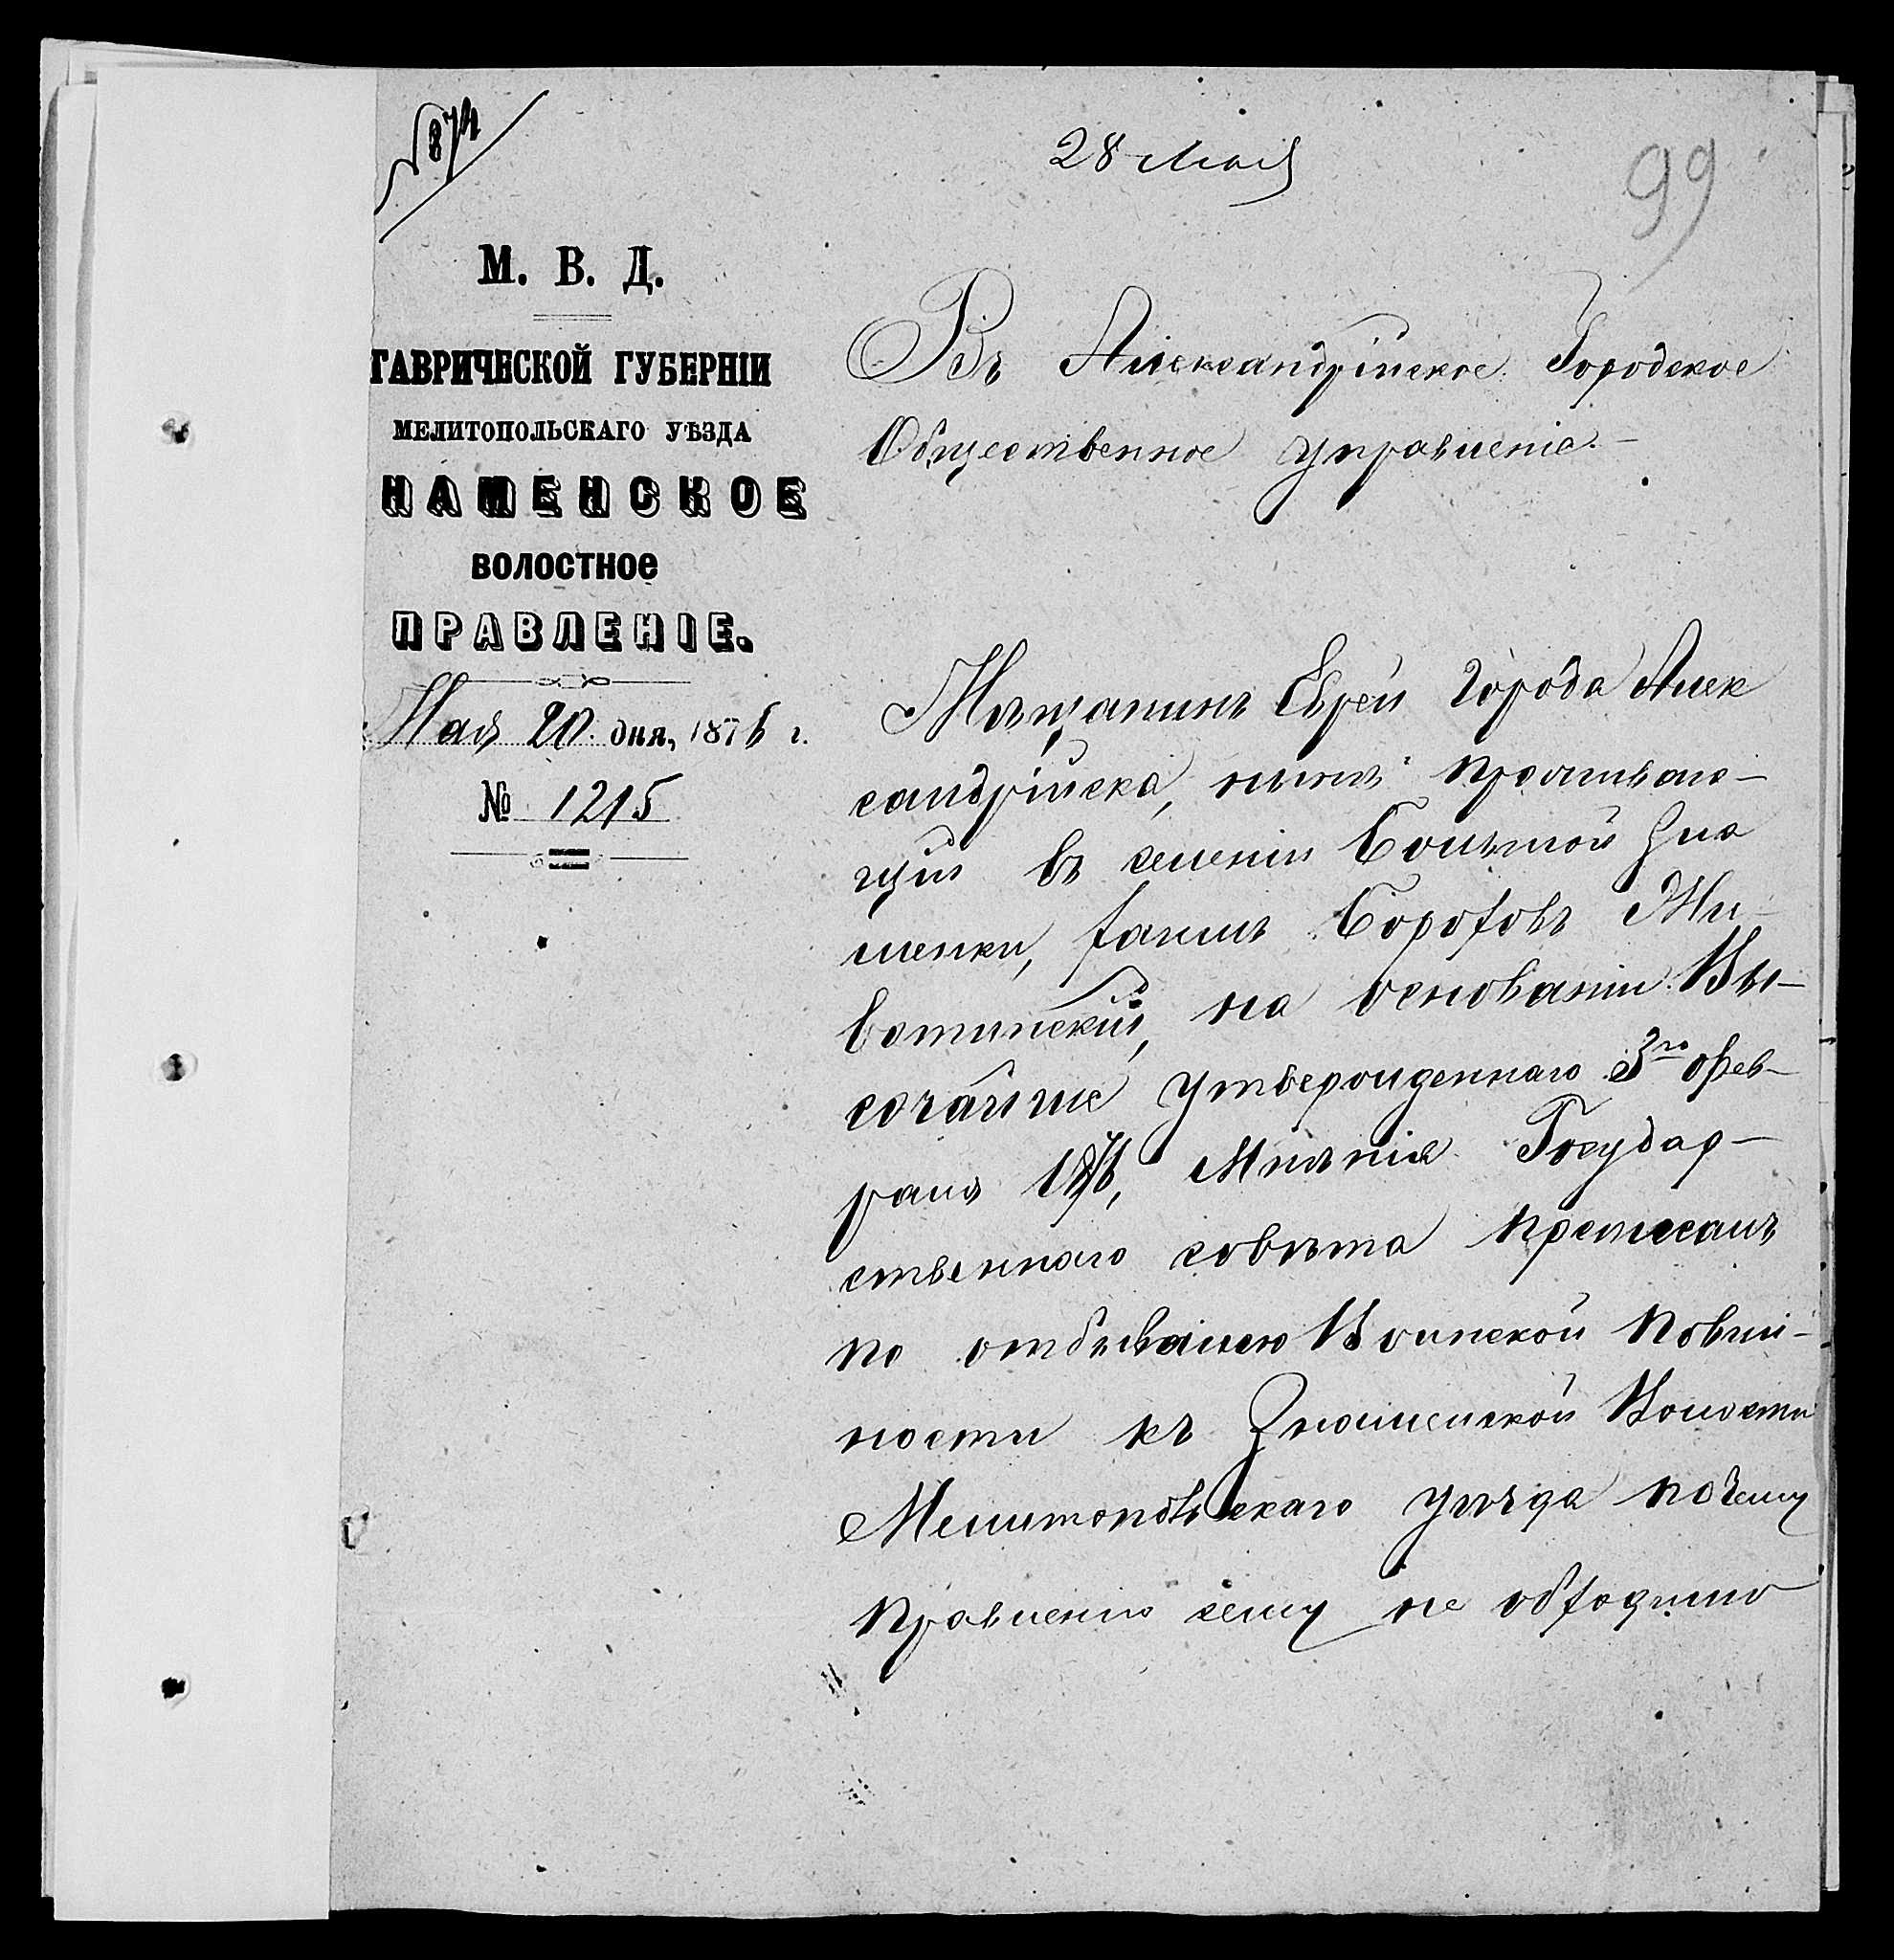 № 874
28 Мая
99
М. В. Д.
ТАВРИЧЕСКОЙ ГУБЕРНІИ
МЕЛИТОПОЛЬСКАГО УѢЗДА
НАМЕНСКОЕ
ВОЛОСТНОЕ
ПРАВЛЕНІЕ.
Мая 20 дня, 1876 г.
№ 1215
Въ Александрійское Городское
Общественное управленіе.
Мѣщанинъ Еврей города Алек
сандрійска, нынѣ проживаю-
щій въ селеніи Большой Зна
менки, Бороховъ Жи-
вотинскій, на основаніи Вы-
сочайше утвержденнаго 3го Фев-
раля 1876, Мнѣнія Государ-
ственнаго совѣта
по отбыванію Воинской Повин-
ности къ Знаменской Волости
Мелитопольскаго уѣзда почему
Правленію сему не обходимо